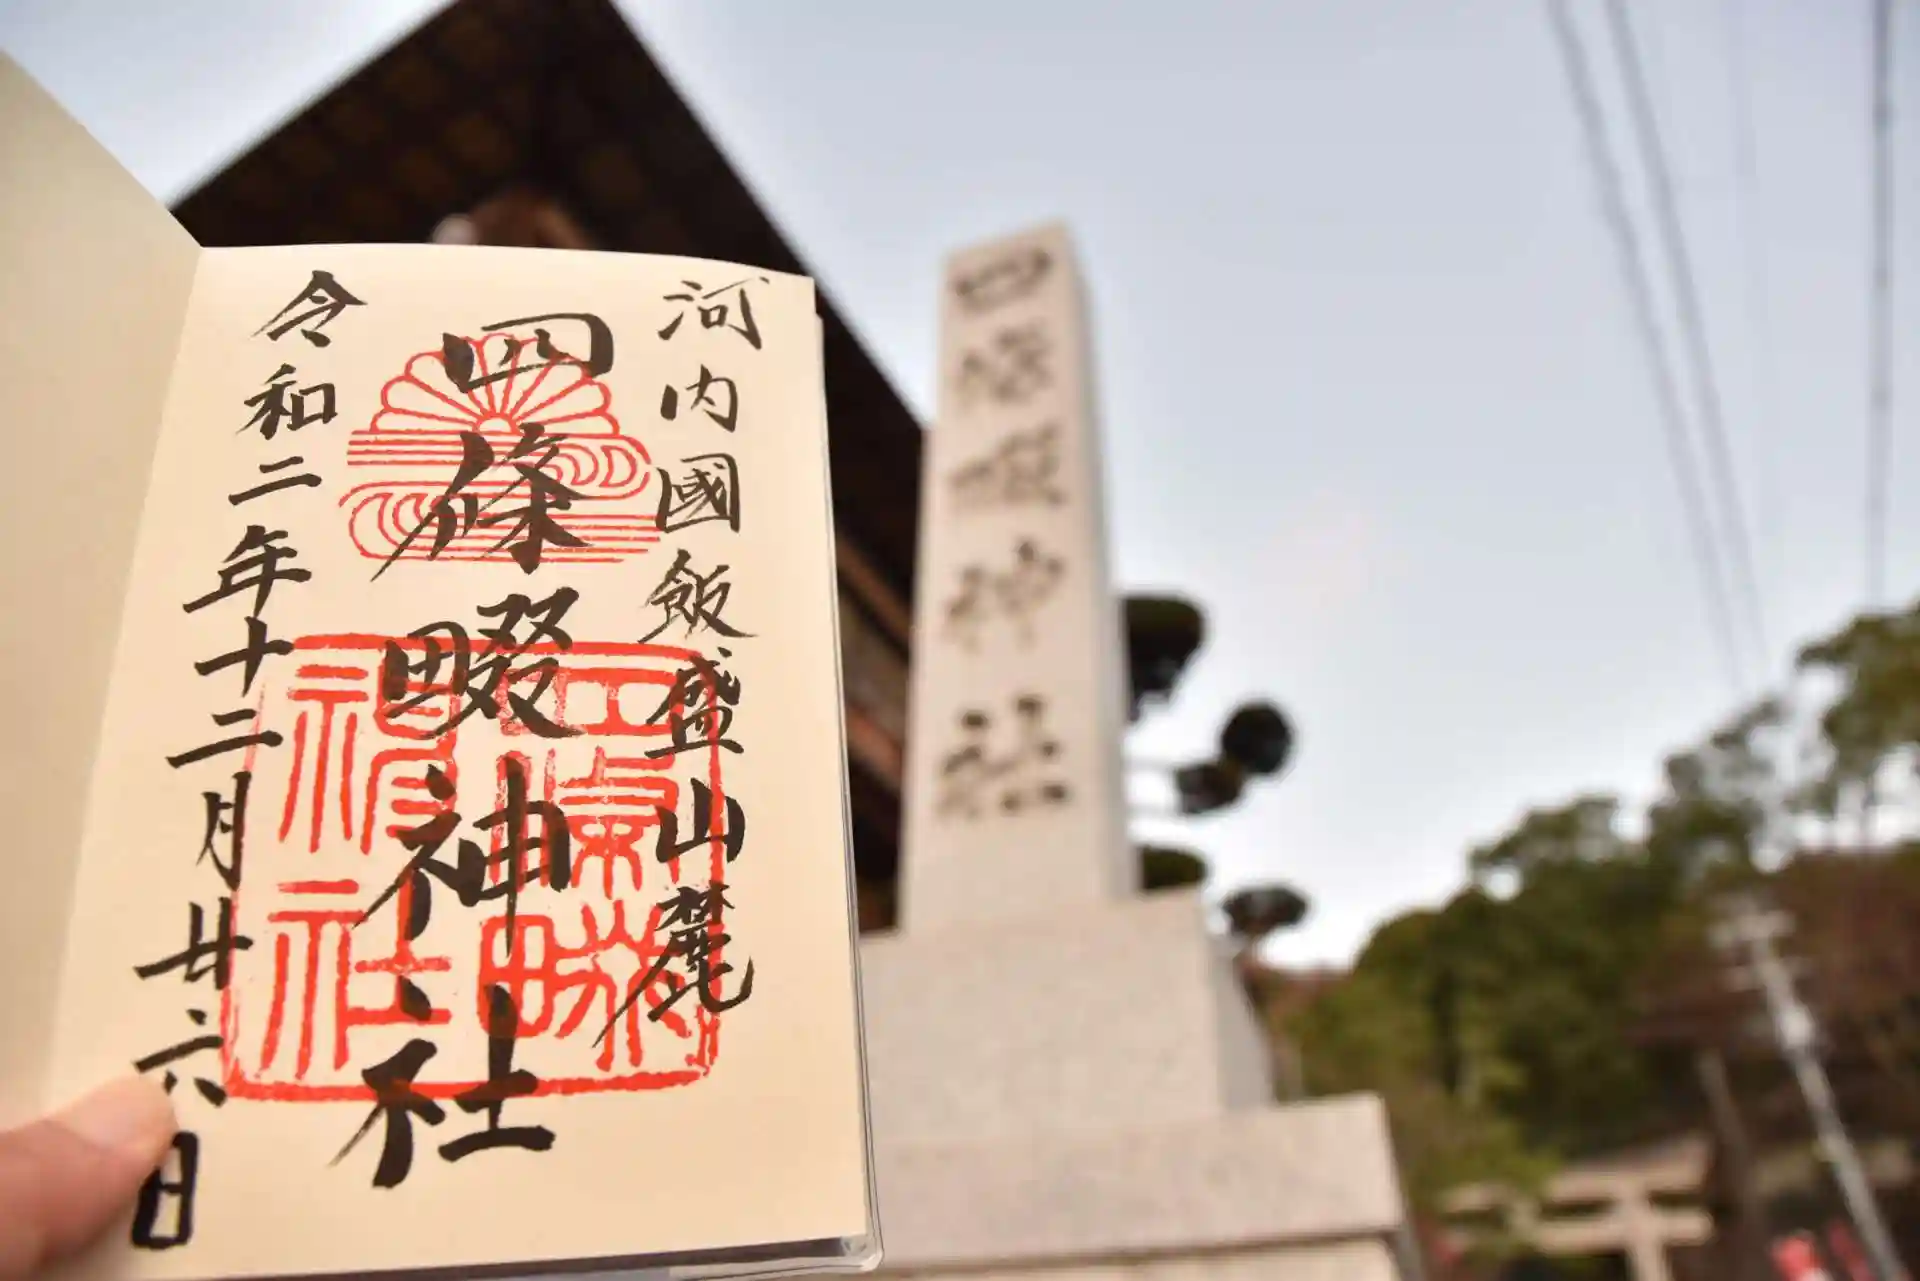 河内國飯盛山麓
四條畷神社
令和二年十二月廿六日
四條畷神社
四條畷神社